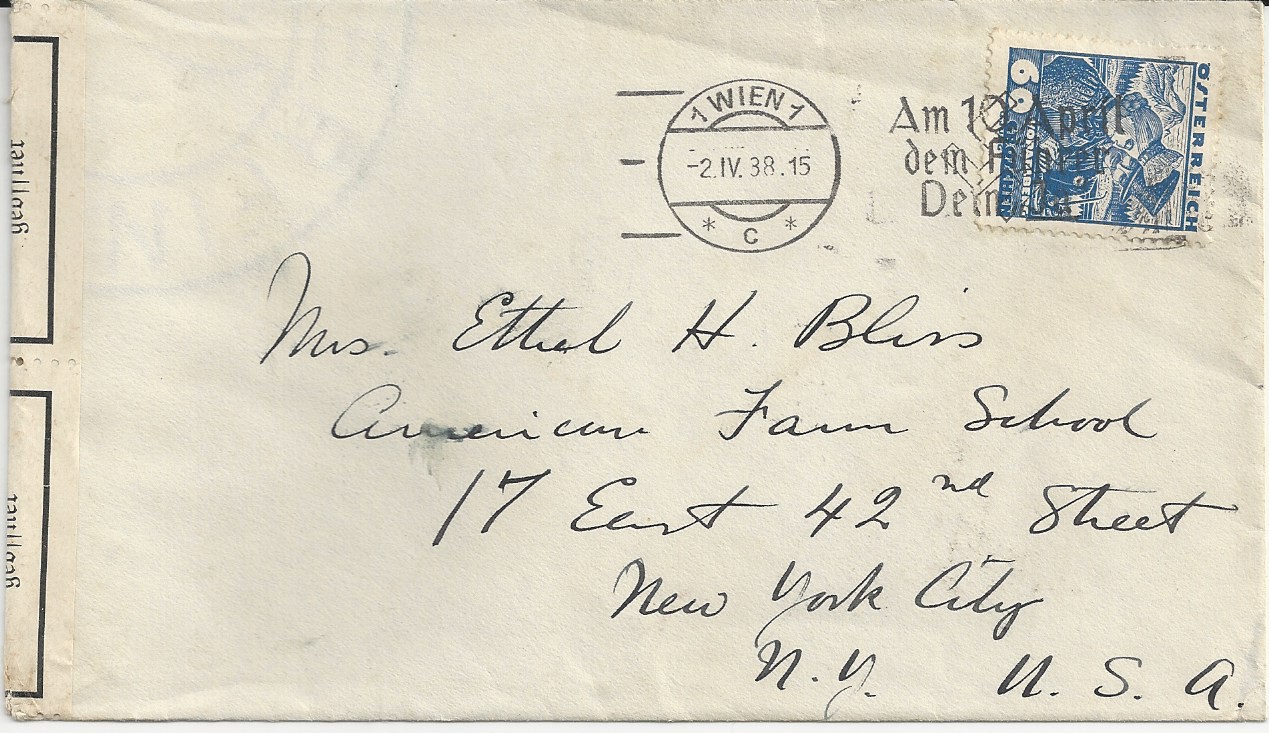 1 WIEN 1
-2.IV.38.15
* C *
Am 10. April
dem Führer
Dein "Ja"
ÖSTERREICH
60
GROSCHEN
Mrs. Ethel H. Bliss
American Farm School
17 East 42nd Street
New York City
N.Y. U. S. A.
geöffnet
geöffnet